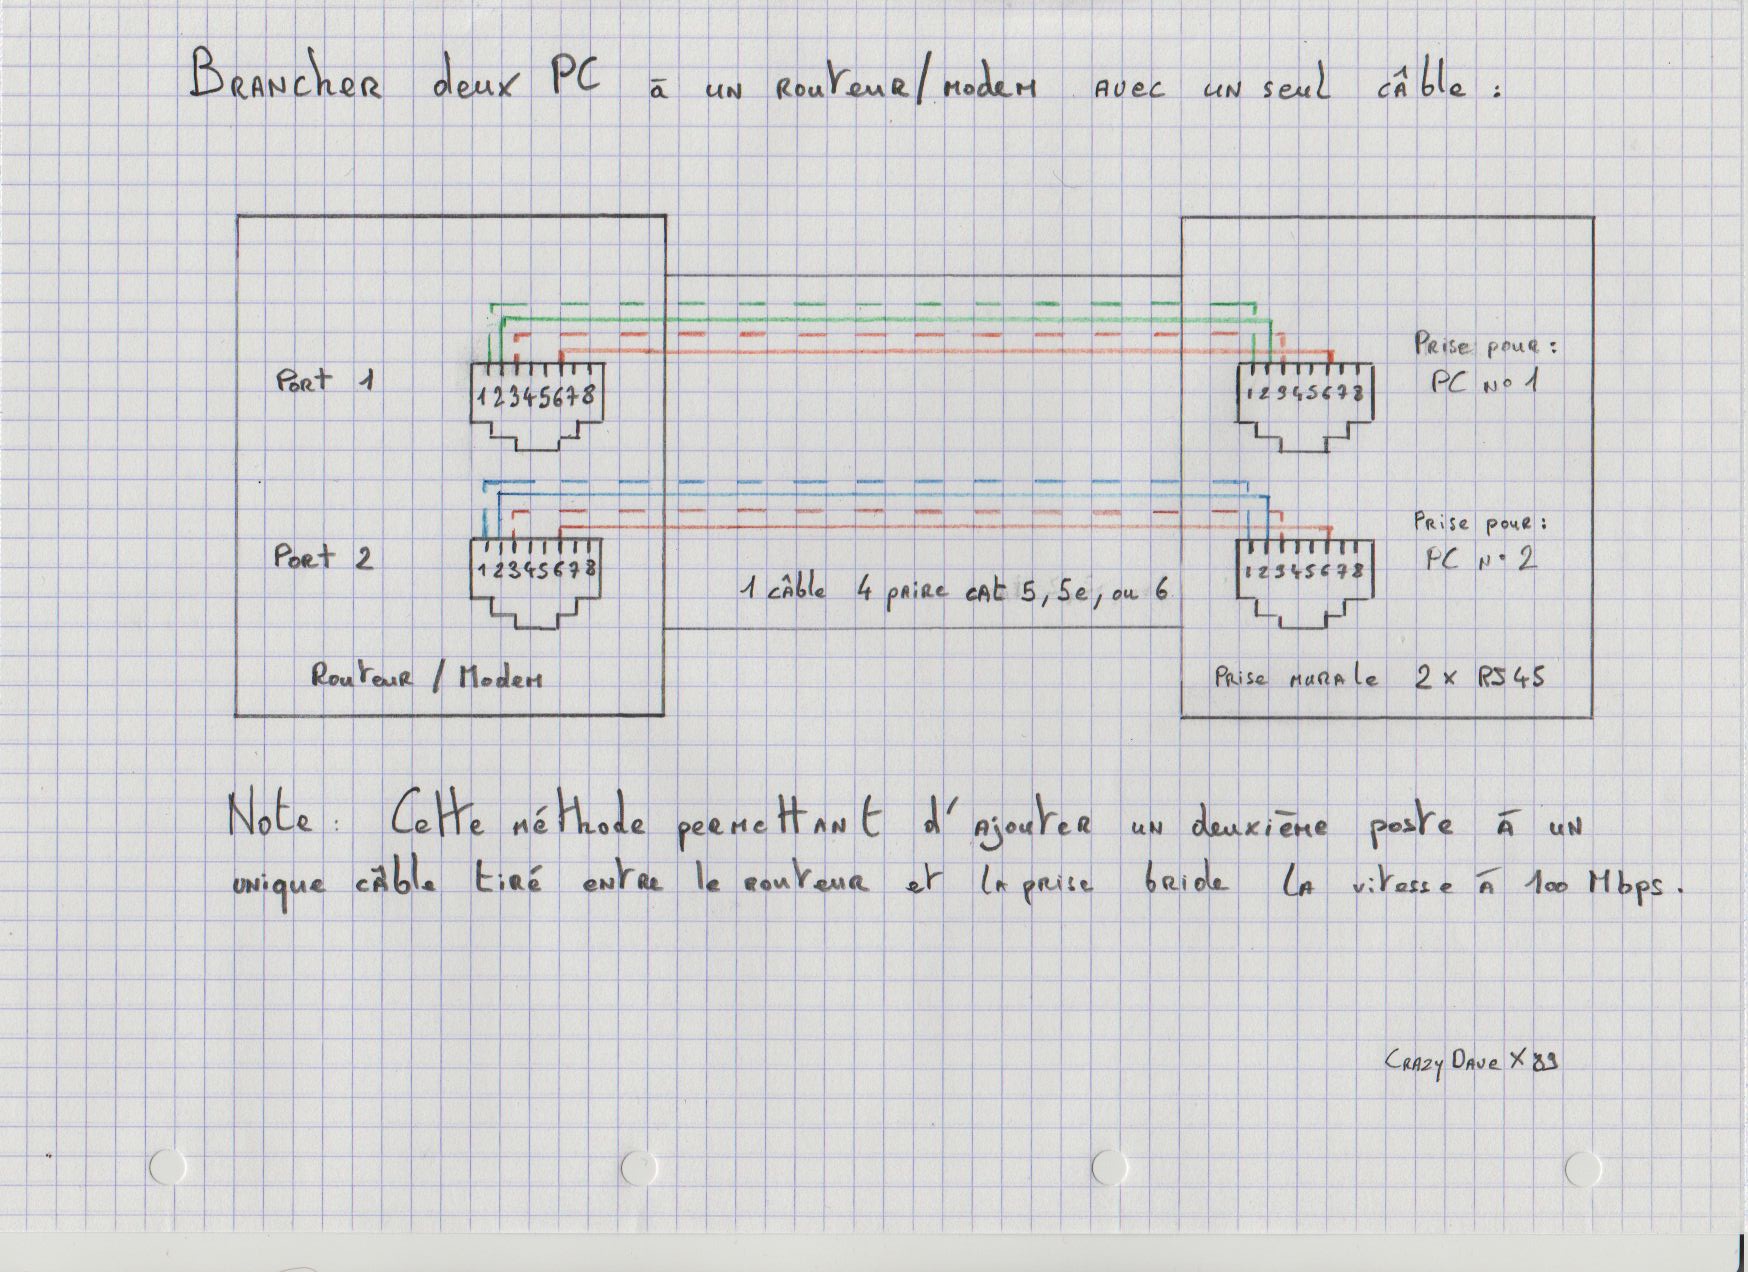 Brancher deux PC à un routeur/modem avec un seul câble :
Port 1
12345678
12345678
Prise pour :
PC n° 1
Port 2
12345678
12345678
Prise pour :
PC n° 2
1 câble 4 paire cat 5, 5e, ou 6
Routeur / Modem
Prise murale 2 x RJ45
Note : Cette méthode permettant d'ajouter un deuxième poste à un
unique câble tiré entre le routeur et la prise bride la vitesse à 100 Mbps.
CrazyDaveX89